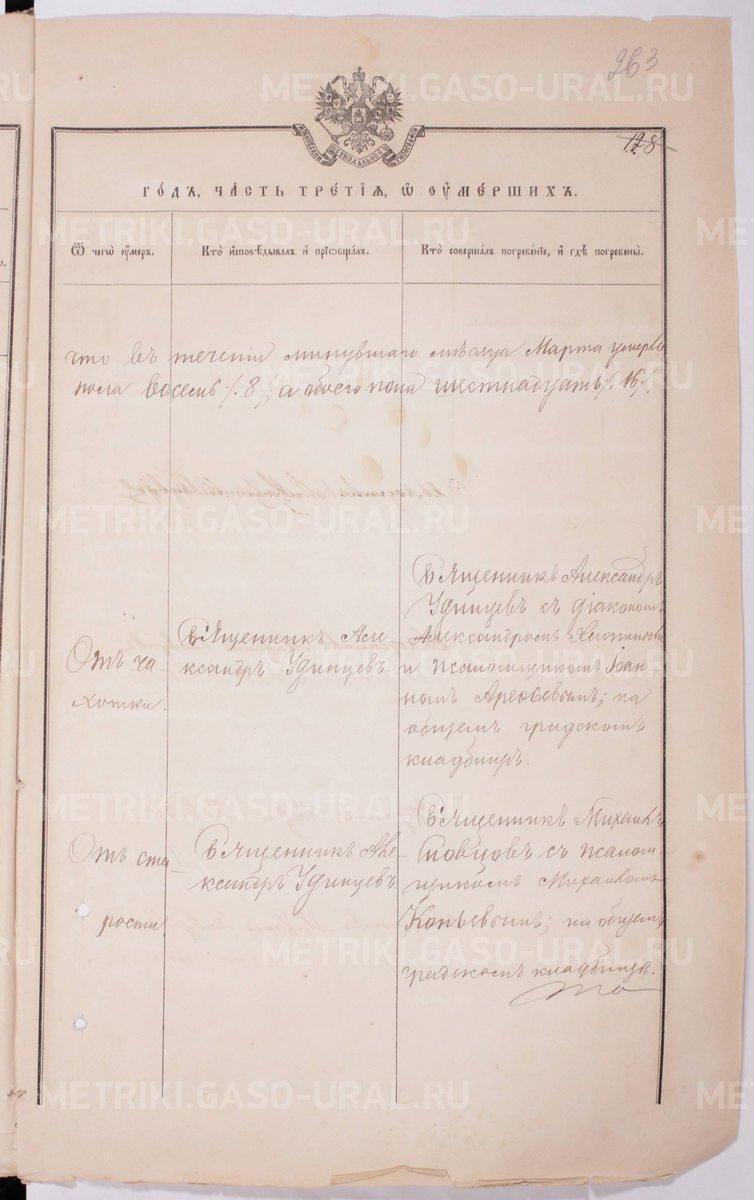 263
128
МОСКОВСКОЙ СѴНОДАЛЬНОЙ ТИПОГРАФІИ
ГО́ДЪ, ЧА́СТЬ ТРЕ́ТІѦ, Ѿ ОУ҆МЕ́РШИХЪ.
Ѿ чегѡ̀ оу҆́меръ.
Кто̀ и҆сповѣ́дывалъ и҆ прїѡбща́лъ.
Кто̀ соверша́лъ погребе́нїе, и҆ гдѣ̀ погребены̀.
что въ теченіи минувшаго мѣсяца Марта умерло
пола восемь /. 8 ./; а обоего пола шестнадцать /. 16 ./.
Отъ ча-
хотки.
Священникъ Але-
ксандръ Удинцевъ.
Священникъ Александръ
Удинцевъ съ діакономъ
Александромъ
и псаломщикомъ Іоан-
номъ Арефьевымъ; на
общемъ градскомъ
кладбищѣ.
Отъ ста-
рости
Священникъ Але-
ксандръ Удинцевъ.
Священникъ Михаилъ
съ псалом-
щикомъ Михаиломъ
Копьевымъ; на общемъ
градскомъ кладбищѣ.
что
METRIKI.GASO-URAL.RU